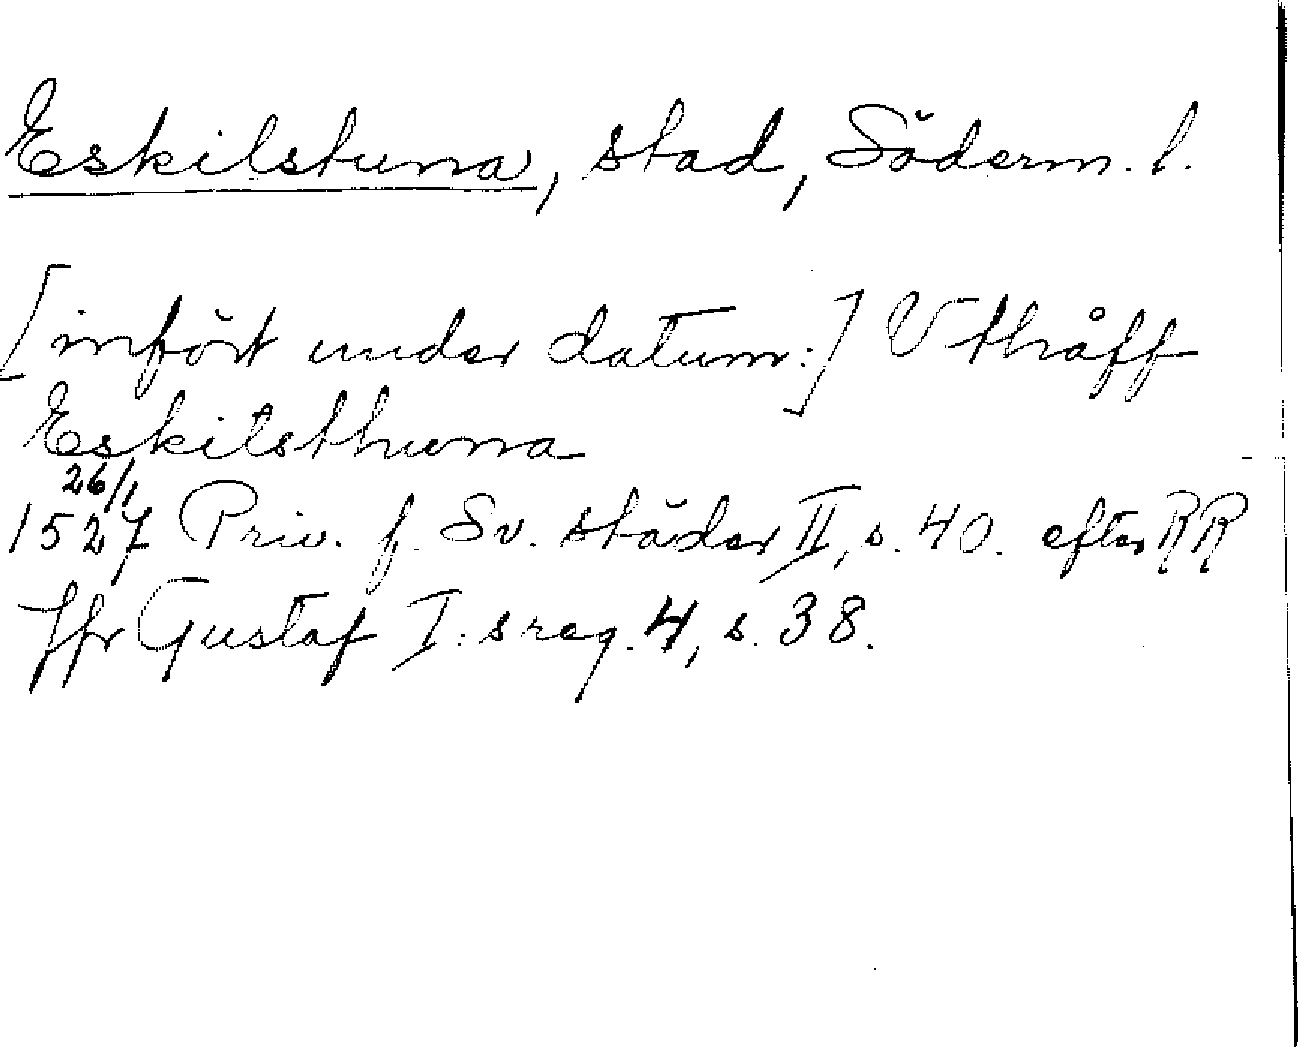 Eskilstuna, stad, Söderm. l.
[infört under datum:] Vthåff
Eskilsthuna
26/1
1527 Priv. f. Sv. städer II, s. 40. efter RR
Jfr Gustaf I:s reg. 4, s. 38.